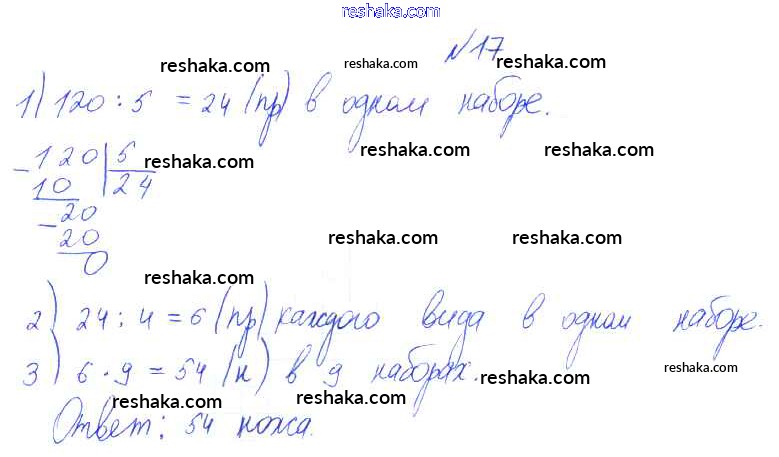 reshaka.com
№17
reshaka.com reshaka.com reshaka.com
1) 120 : 5 = 24 (пр) в одном наборе.
120 5
reshaka.com reshaka.com reshaka.com
10 24
20
20
reshaka.com reshaka.com
0
reshaka.com
2) 24 : 4 = 6 (пр) каждого вида в одном наборе.
3) 6 · 9 = 54 (н) в 9 наборах.
reshaka.com reshaka.com
reshaka.com reshaka.com
Ответ: 54 ножа.